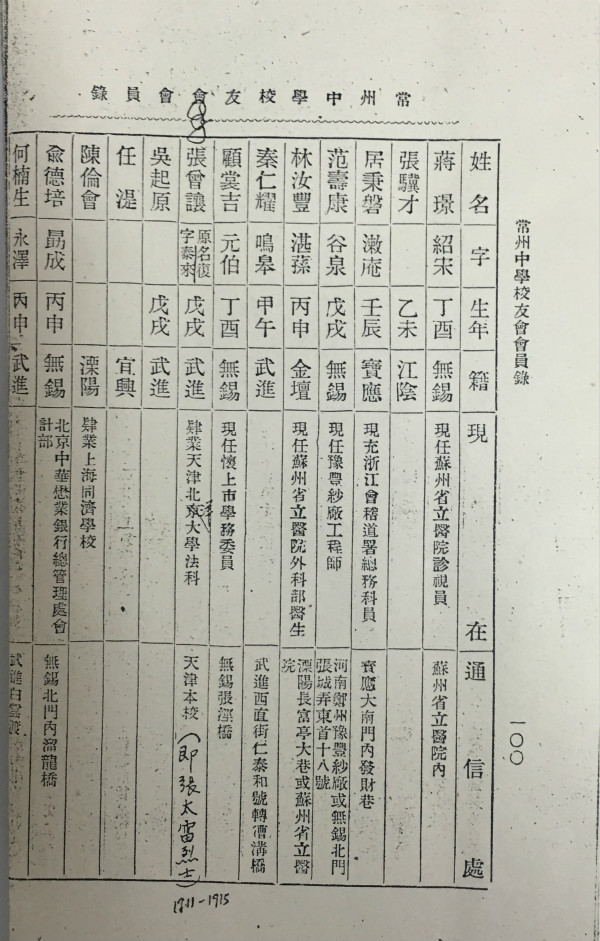 常州中學校友會會員錄
常州中學校友會會員錄
一〇〇
姓名 字 生年 籍 現在通信處
蔣璟 紹宋 丁酉 無錫 現任蘇州省立醫院診視員 蘇州省立醫院內
張驥才 乙未 江陰
居秉磐 漱庵 壬辰 寶應 現充浙江會稽道署總務科員 寶應大南門內發財巷
范壽康 谷泉 戊戌 無錫 現任豫豐紗廠工程師 河南鄭州豫豐紗廠或無錫北門張城弄東首十八號
林汝豐 湛蓀 丙申 金壇 現任蘇州省立醫院外科部醫生 溧陽長富亭大巷或蘇州省立醫院
秦仁耀 鳴皋 甲午 武進 武進西直街仁泰和號轉漕溝橋
顧裳吉 元伯 丁酉 無錫 現任懷上市學務委員 無錫張涇橋
張曾讓 原名復字泰來 戊戌 武進 肄業天津北京大學法科 天津本校(即張太雷烈士)
1911-1915
吳起原 戊戌 武進
任湜 宜興
陳倫會 溧陽 肄業上海同濟學校
兪德培 勗成 丙申 無錫 北京中華懋業銀行總管理處會計部 無錫北門內溜龍橋
何楠生 永澤 丙申 武進 武進白雲渡